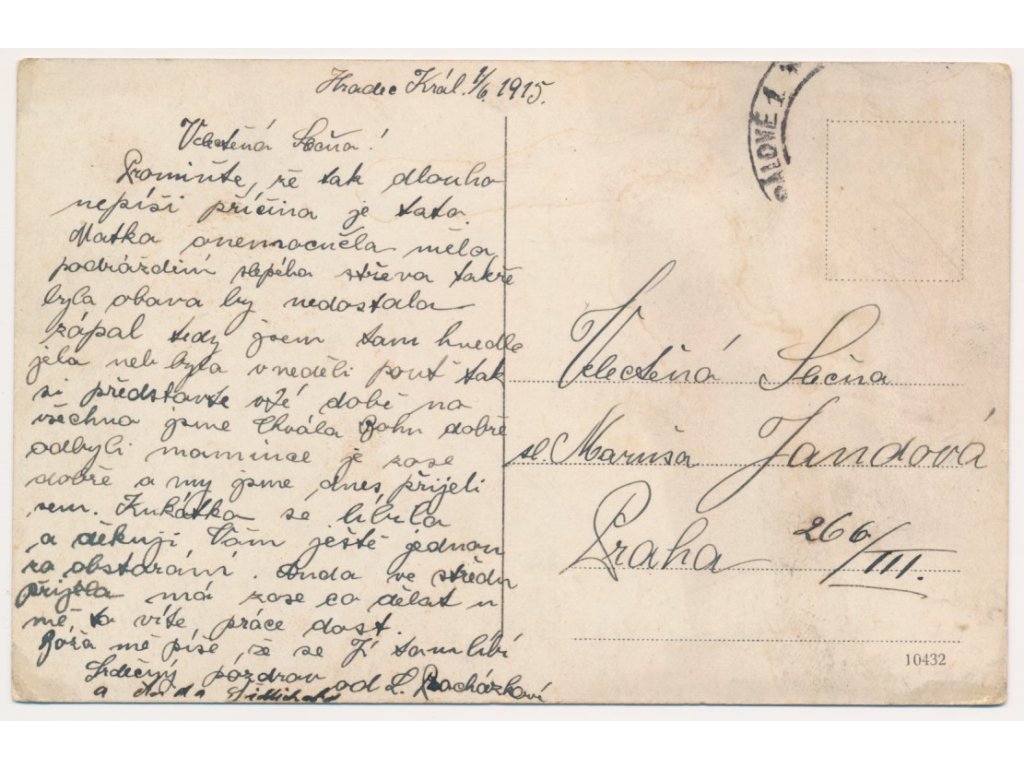 Hradec Král. 1/6. 1915.
Velectěná Slečna!
Promiňte, že tak dlouho
nepíši příčina je tato.
Matka onemocněla měla
podráždění slepého střeva takže
byla obava by nedostala
zápal tedy jsem tam hnedle
jela neb byla v neděli pouť tak
si představte v té době no
všechno jsme Chvála Bohu dobře
odbyli mamince je zase
dobře a my jsme dnes přijeli
sem. Kukátka se líbila
a děkuji Vám ještě jednou
za obstarání. Anda ve středu
přijela má zase co dělat u
mě, to víte, práce dost.
Božа mě píše, že se Jí tam líbí
Srdečný pozdrav od L. Procházkové
a Anda
Velectěná Slečna
sl. Maruša Jandová
Praha 266/III.
ÁLOVÉ 1
10432